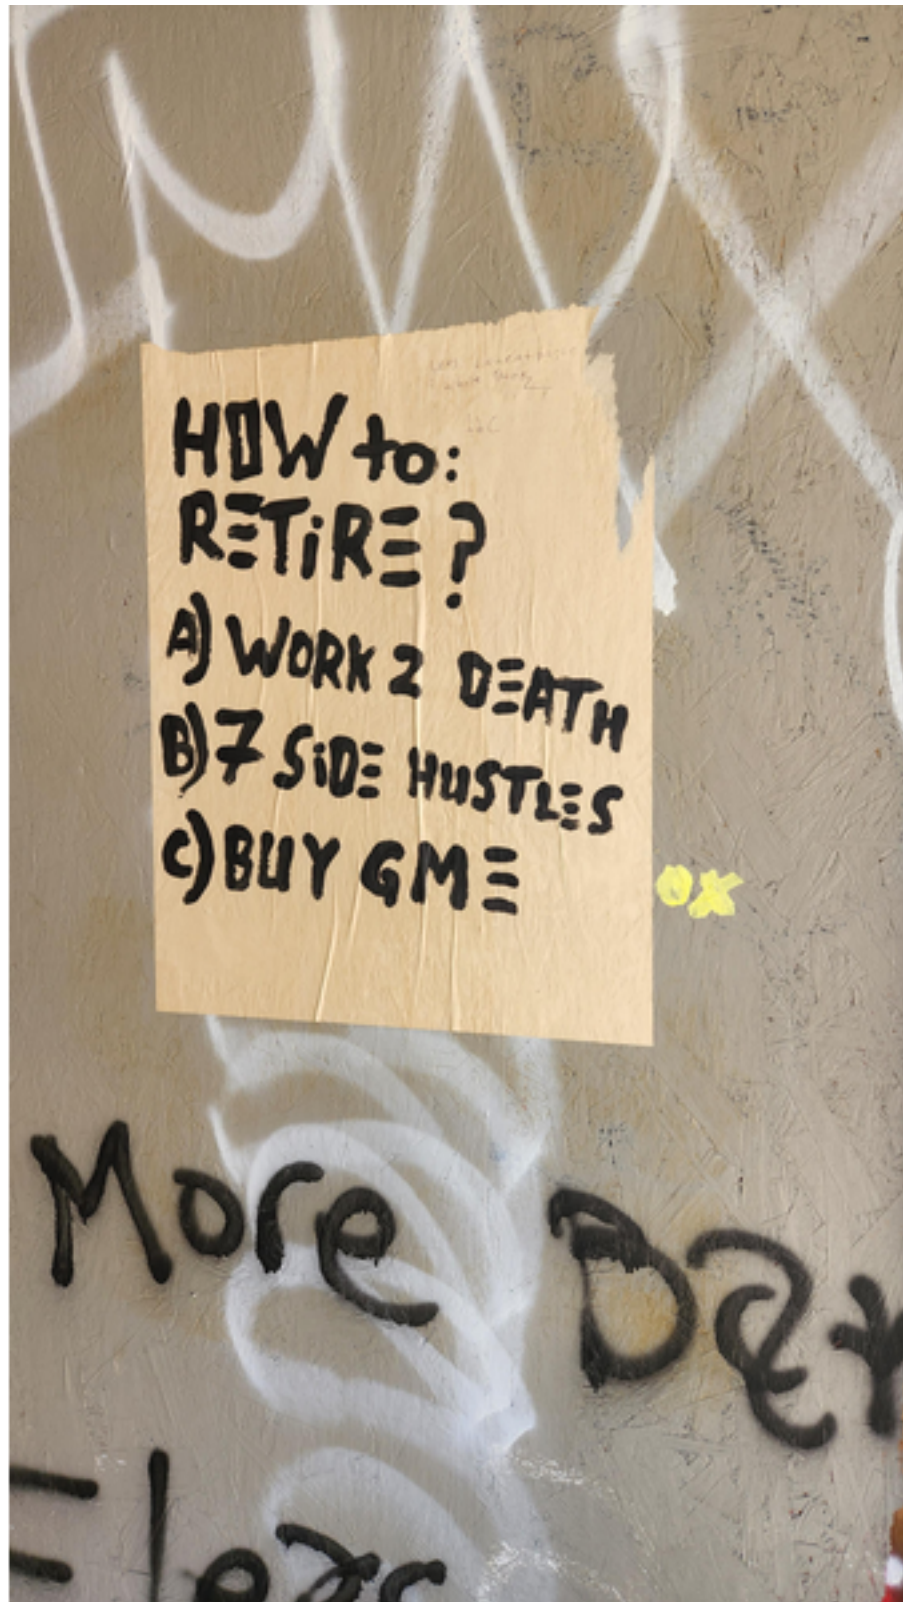 HOW to:
RETiRE?
A) WORK 2 DEATH
B) 7 SiDE HUSTLES
C) BUY GME
OK
More